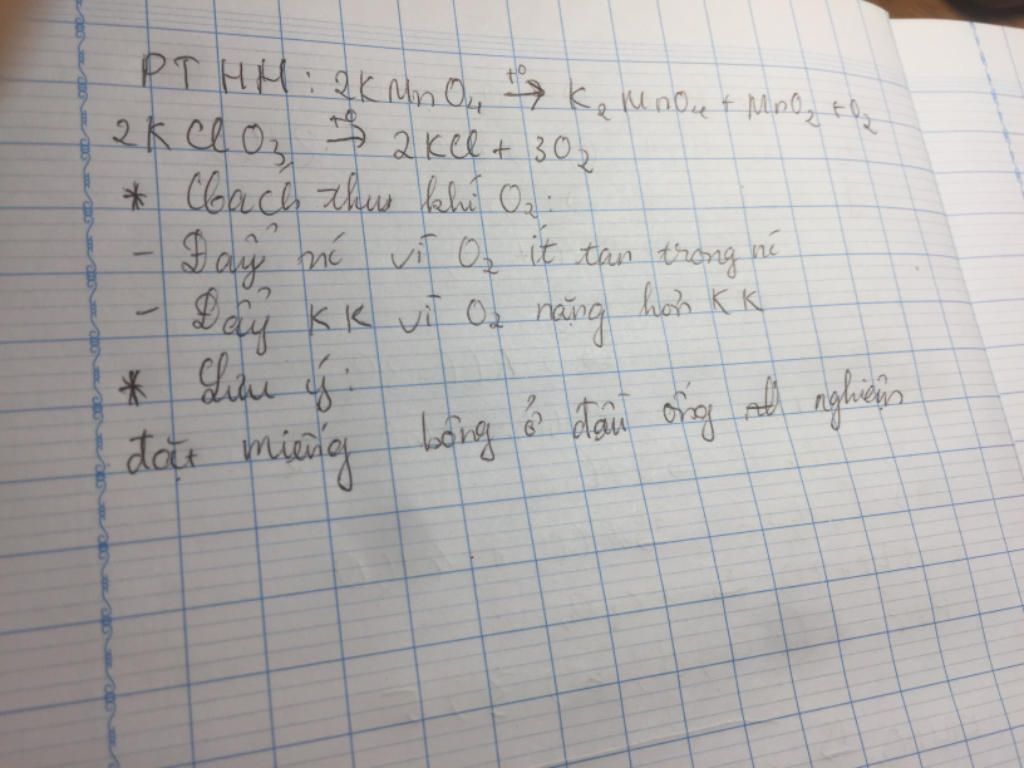 PTHH: 2KMnO₄ t⁰→ K₂MnO₄ + MnO₂ + O₂
2KClO₃ t⁰→ 2KCl + 3O₂
* Cách thu khí O₂:
- Đẩy nc vì O₂ ít tan trong nc
- Đẩy KK vì O₂ nặng hơn KK
* Lưu ý:
đặt miếng bông ở đầu ống nghiệm